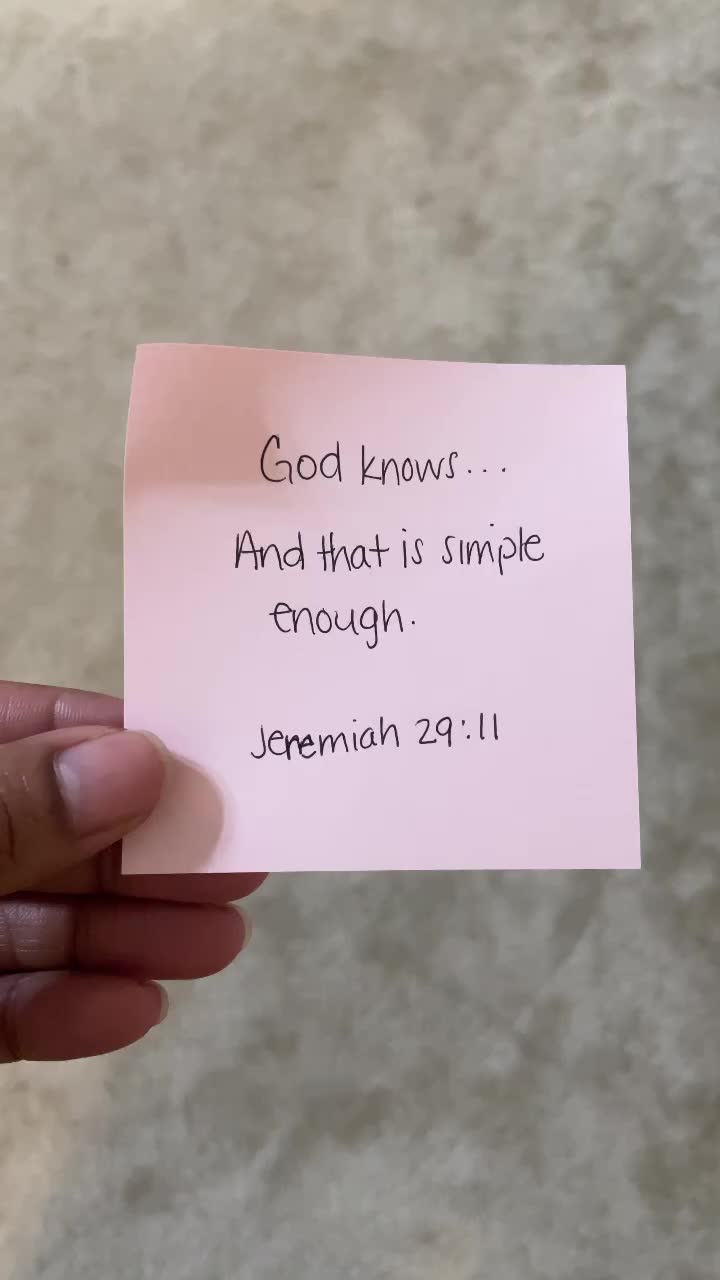 God knows...
And that is simple
enough.
Jeremiah 29:11